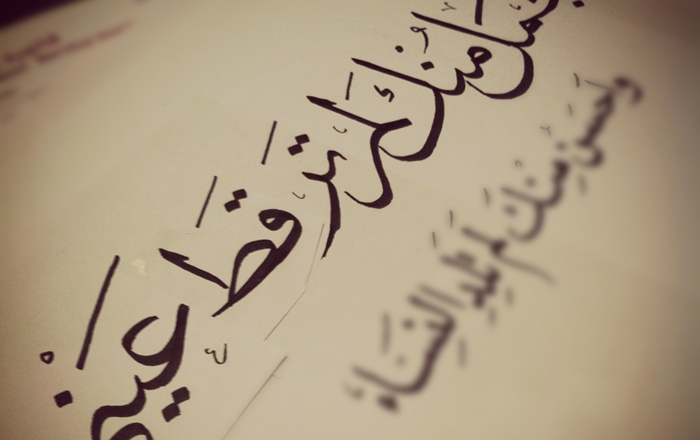 مِنكَ لَم تَرَ قَطُّ عَيْنِي
وَأَحسَن مِنكَ لَم تَلِدِ النِّسَاءُ